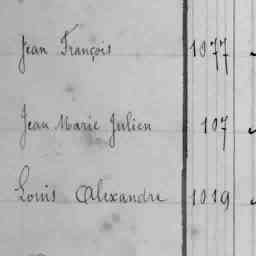 Jean François 1077
Jean Marie Julien 107
Louis Alexandre 1019